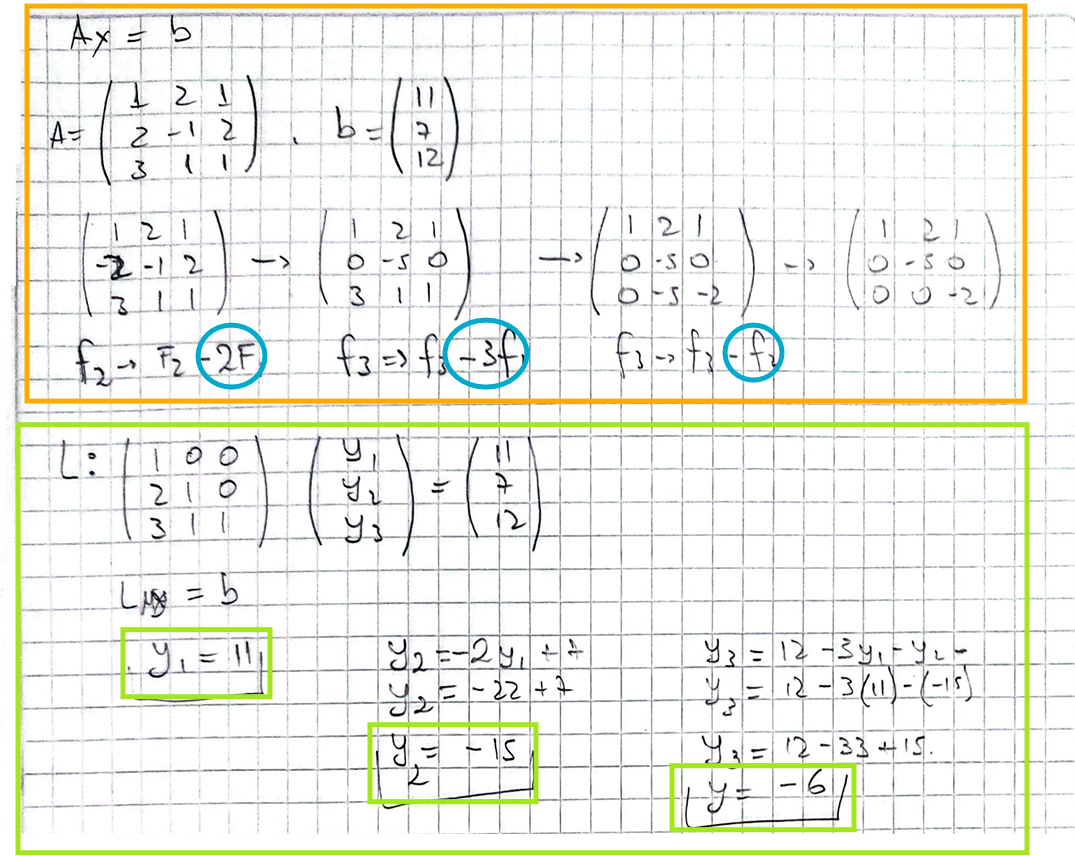 Ax = b
A = ( 1 2 1 ; 2 -1 2 ; 3 1 1 ) . b = ( 11 ; 7 ; 12 )
( 1 2 1 ; -2 -1 2 ; 3 1 1 ) → ( 1 2 1 ; 0 -5 0 ; 3 1 1 ) → ( 1 2 1 ; 0 -5 0 ; 0 -5 -2 ) → ( 1 2 1 ; 0 -5 0 ; 0 0 -2 )
f2 → F2 -2F1 f3 => f3 -3f1 f3 → f3 -f2
L: ( 1 0 0 ; 2 1 0 ; 3 1 1 ) ( y1 ; y2 ; y3 ) = ( 11 ; 7 ; 12 )
Ly = b
y1 = 11
y2 = -2y1 + 7
y2 = -22 + 7
y2 = -15
y3 = 12 - 3y1 - y2 -
y3 = 12 - 3(11) - (-15)
y3 = 12 - 33 + 15.
y = -6